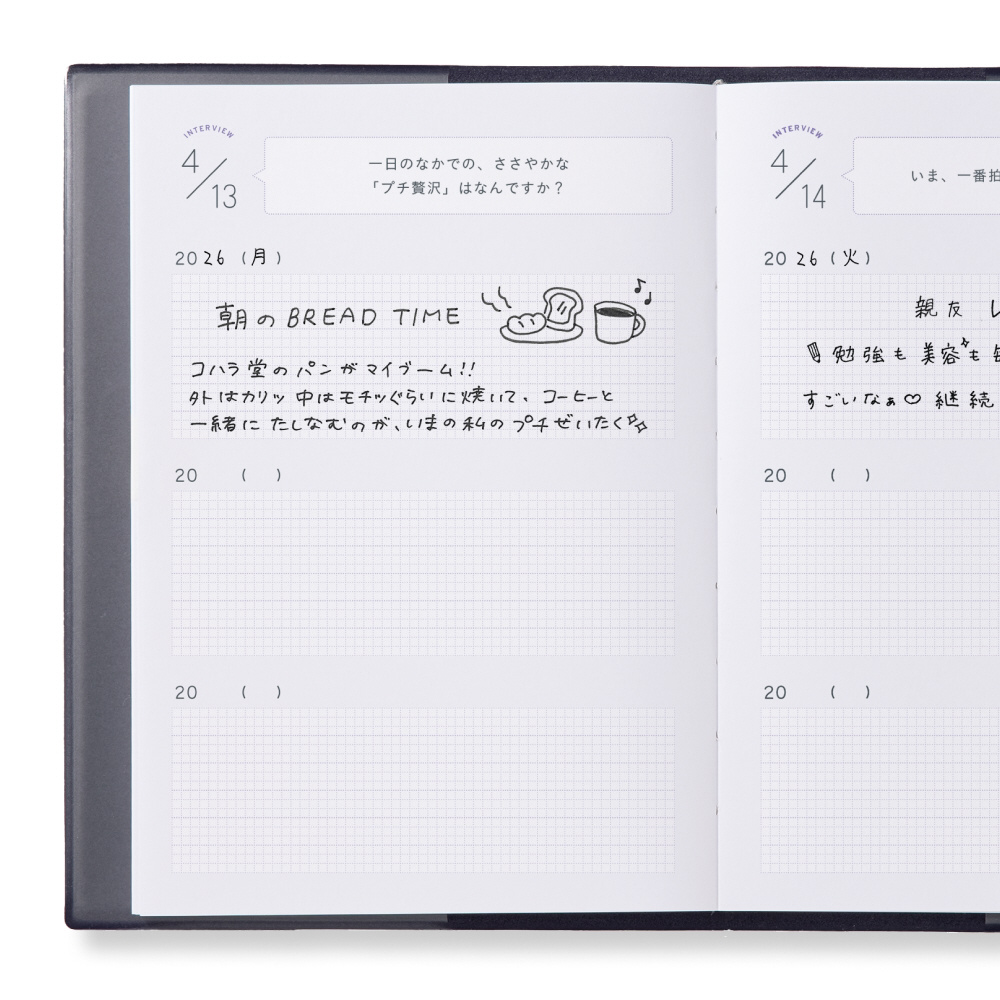 INTERVIEW
4/13
一日のなかでの、ささやかな
「プチ贅沢」はなんですか？
2026（月）
朝の BREAD TIME
コハラ堂のパンがマイブーム!!
外はカリッ 中はモチッぐらいに焼いて、コーヒーと
一緒に たしなむのが、いまの私の プチぜいたく
20 （ ）
20 （ ）
INTERVIEW
4/14
いま、一番
2026（火）
親友
勉強も 美容も
すごいなぁ♡ 継続
20 （ ）
20 （ ）